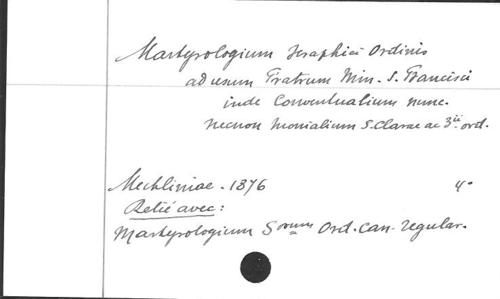 Martyrologium Seraphici Ordinis
ad usum Fratrum Min. S. Francisci
inde Conventualium nunc.
necnon Monialium S. Clarae ac 3ii ord.
Mechliniae. 1876 4°
Relié avec:
Martyrologium Sorum Ord. Can. regular.